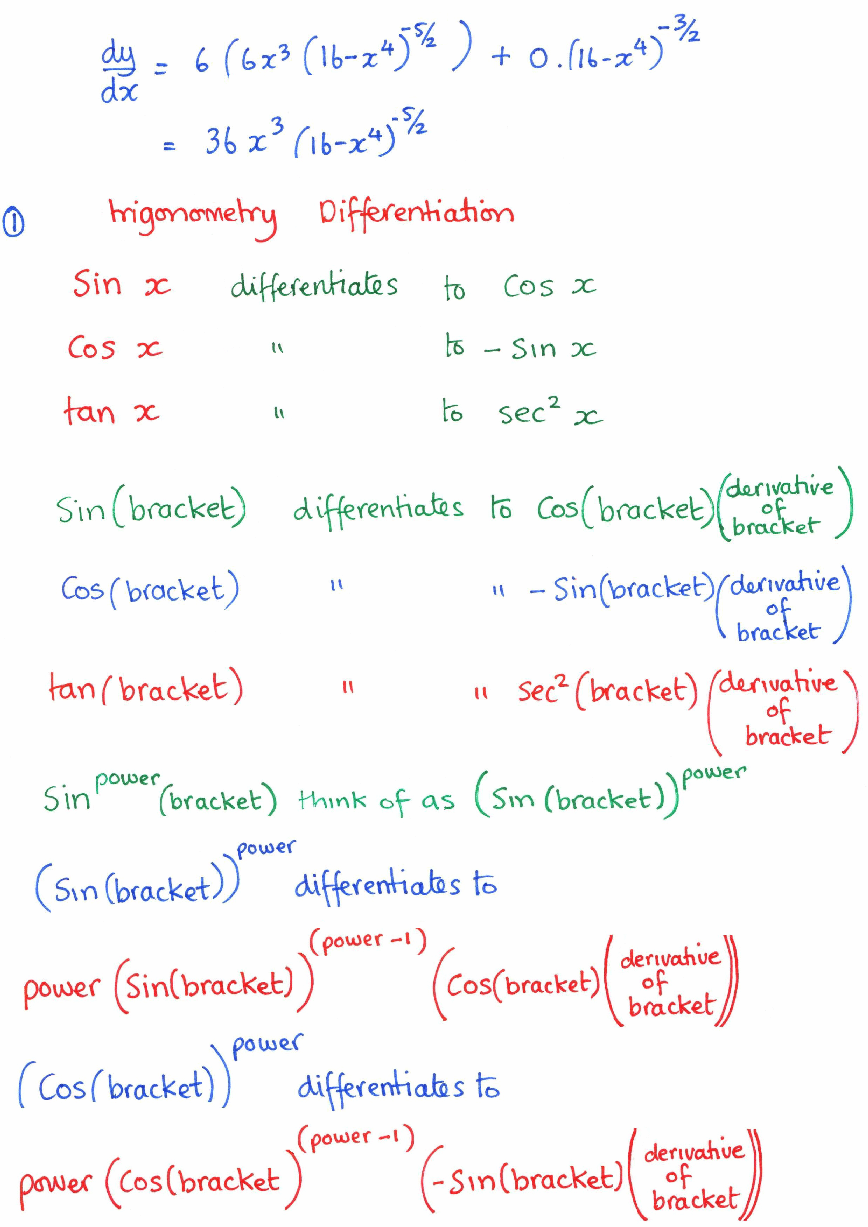 dy/dx = 6 (6x³ (16-x⁴)^-5/2 ) + 0.(16-x⁴)^-3/2
= 36 x³ (16-x⁴)^-5/2
① trigonometry Differentiation
Sin x differentiates to Cos x
Cos x " to - Sin x
tan x " to sec² x
Sin(bracket) differentiates to Cos(bracket)(derivative of bracket)
Cos(bracket) " " - Sin(bracket)(derivative of bracket)
tan(bracket) " " Sec²(bracket)(derivative of bracket)
Sin^power (bracket) think of as (Sin (bracket))^power
(Sin(bracket))^power differentiates to
power (Sin(bracket))^(power -1) (Cos(bracket)(derivative of bracket))
(Cos(bracket))^power differentiates to
power (Cos(bracket)^(power -1) (-Sin(bracket)(derivative of bracket))